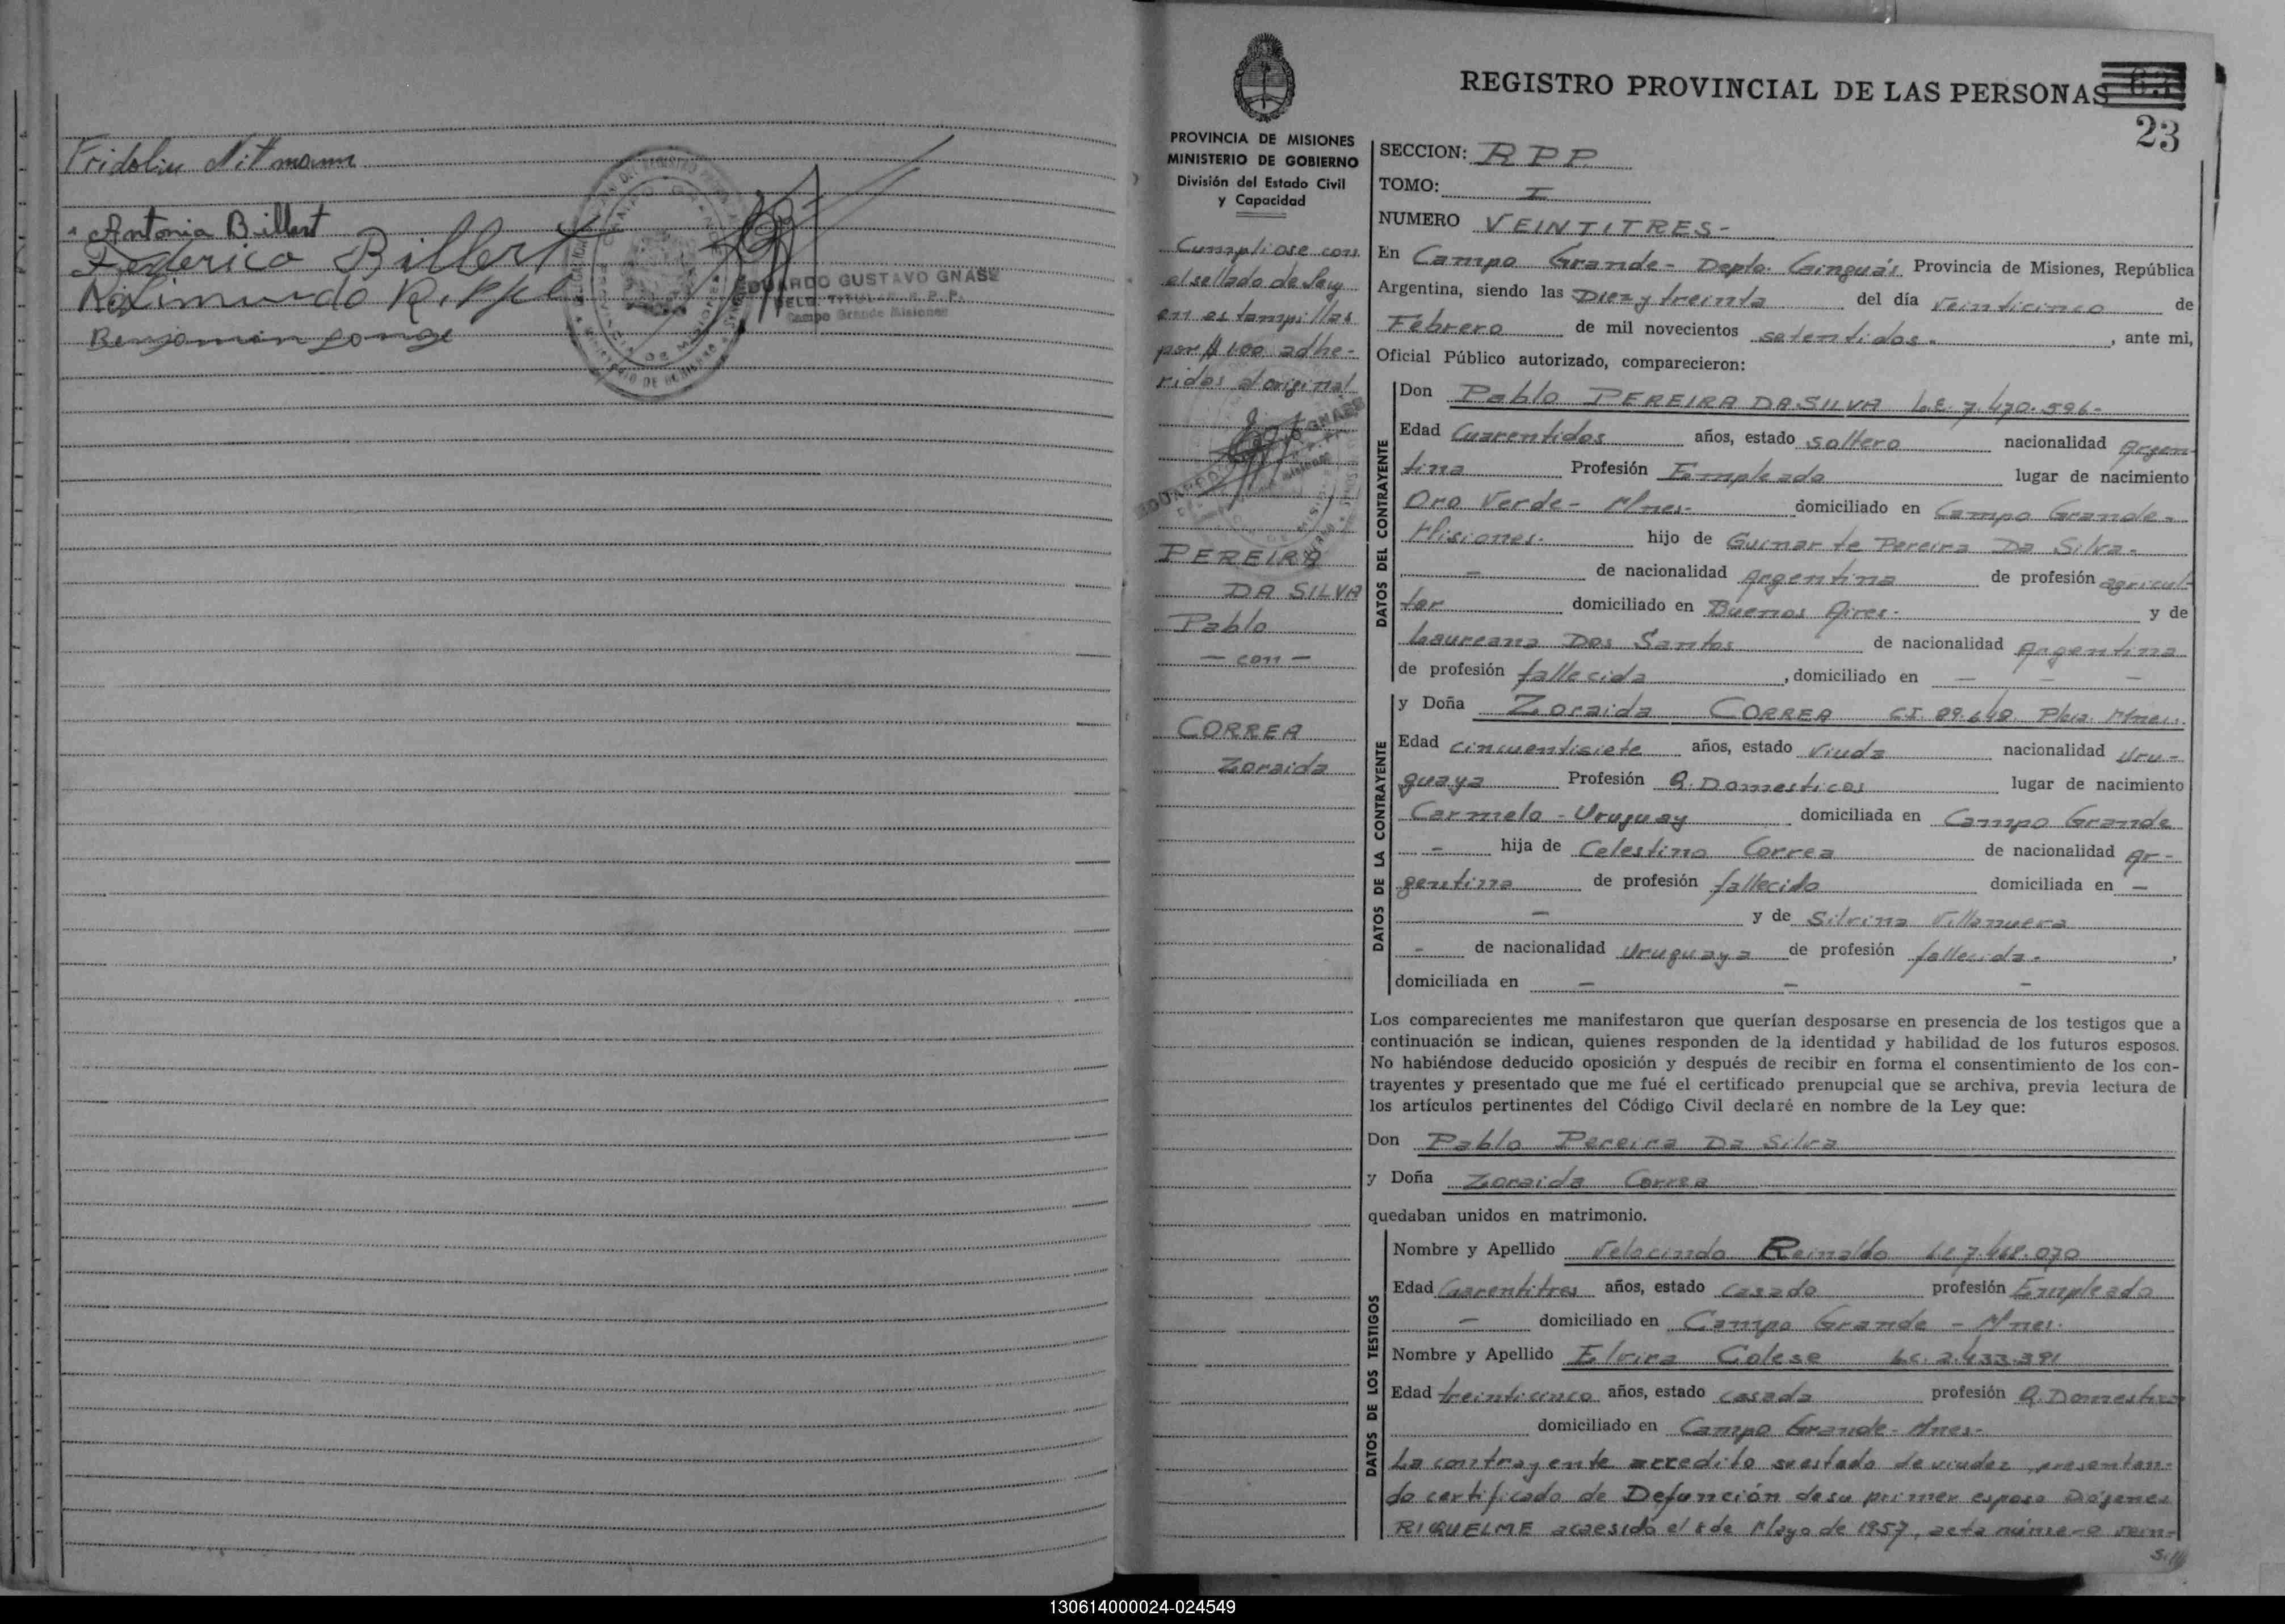 Fridolin Nitmann
Antonia Billert
Federico Billert
EDUARDO GUSTAVO GNASE
DELG. TITULAR R. P. P.
Campo Grande Misiones
REGISTRO PROVINCIAL DE LAS PERSONAS
23
PROVINCIA DE MISIONES
MINISTERIO DE GOBIERNO
División del Estado Civil
y Capacidad
Cumpliose con
el sellado de Ley
en estampillas
por $ 1.00 adhe-
ridas al original
PEREIRA
DA SILVA
Pablo
- con -
CORREA
Zoraida
SECCION: RPP.
TOMO: I
NUMERO VEINTITRES-
En Campo Grande- Depto. Cainguás Provincia de Misiones, República
Argentina, siendo las Diez y treinta del día veinticinco de
Febrero de mil novecientos setentidos. , ante mi,
Oficial Público autorizado, comparecieron:
DATOS DEL CONTRAYENTE
Don Pablo PEREIRA DA SILVA L.E. 7.470.596-
Edad Cuarentidos años, estado soltero nacionalidad Argen-
tina Profesión Empleado lugar de nacimiento
Oro Verde- Mnes- domiciliado en Campo Grande-
Misiones. hijo de Guimarte Pereira Da Silva-
- de nacionalidad Argentina de profesión agricul-
tor domiciliado en Buenos Aires- y de
Laureana Dos Santos de nacionalidad Argentina
de profesión fallecida , domiciliado en - - -
DATOS DE LA CONTRAYENTE
y Doña Zoraida CORREA C.I. 89.640 Pcia. Mnes.
Edad cincuentisiete años, estado viuda nacionalidad Uru-
guaya Profesión Q. Domesticos lugar de nacimiento
Carmelo - Uruguay domiciliada en Campo Grande
- hija de Celestino Correa de nacionalidad Ar-
gentina de profesión fallecido domiciliada en -
- y de Silvina Villanueva
- de nacionalidad Uruguaya de profesión fallecida. ,
domiciliada en - - -
Los comparecientes me manifestaron que querían desposarse en presencia de los testigos que a
continuación se indican, quienes responden de la identidad y habilidad de los futuros esposos.
No habiéndose deducido oposición y después de recibir en forma el consentimiento de los con-
trayentes y presentado que me fué el certificado prenupcial que se archiva, previa lectura de
los artículos pertinentes del Código Civil declaré en nombre de la Ley que:
Don Pablo Pereira Da Silva
y Doña Zoraida Correa
quedaban unidos en matrimonio.
DATOS DE LOS TESTIGOS
Nombre y Apellido Velacindo Reinaldo L.E. 7.468.070
Edad Cuarentitres años, estado casado profesión Empleado
- domiciliado en Campo Grande - Mnes.
Nombre y Apellido Elvira Colese L.C. 2.433.391
Edad treinticinco años, estado casada profesión Q. Domesticos
domiciliado en Campo Grande- Mnes-
La contrayente acredito su estado de viudez presentan-
do certificado de Defunción de su primer esposo Diógenes
RIQUELME acaesido el 8 de Mayo de 1957, acta número vein-
130614000024-024549